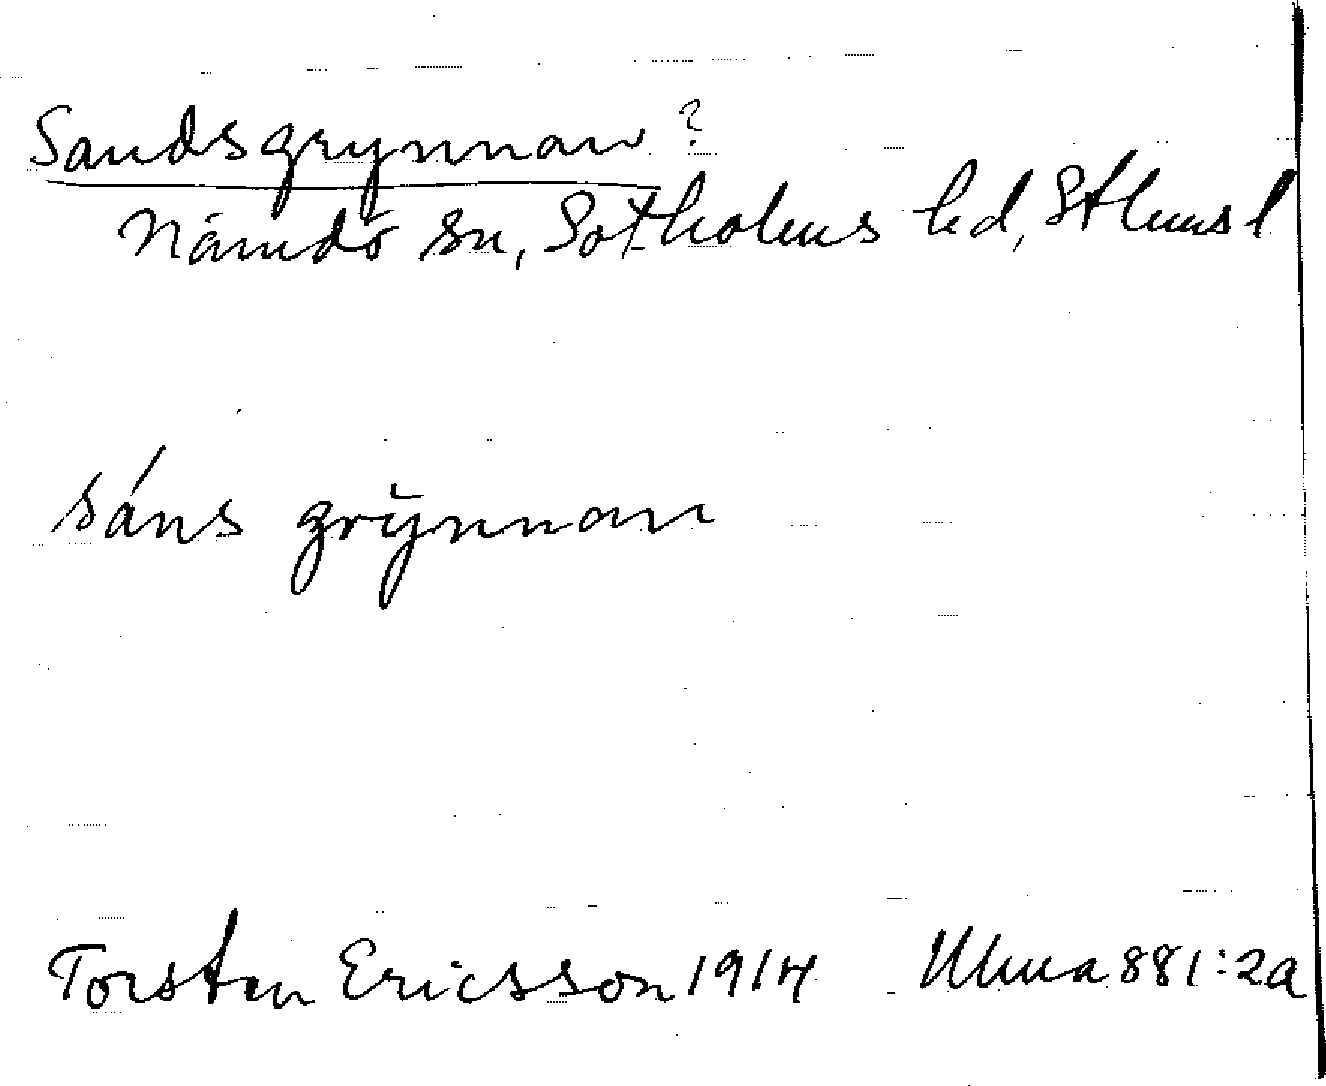 Sandsgrynnan ?
Nämdö sn, Sotholms hd, Sthms l
sáns grỳnnan
Torsten Ericsson 1914 Uluma 881:2a